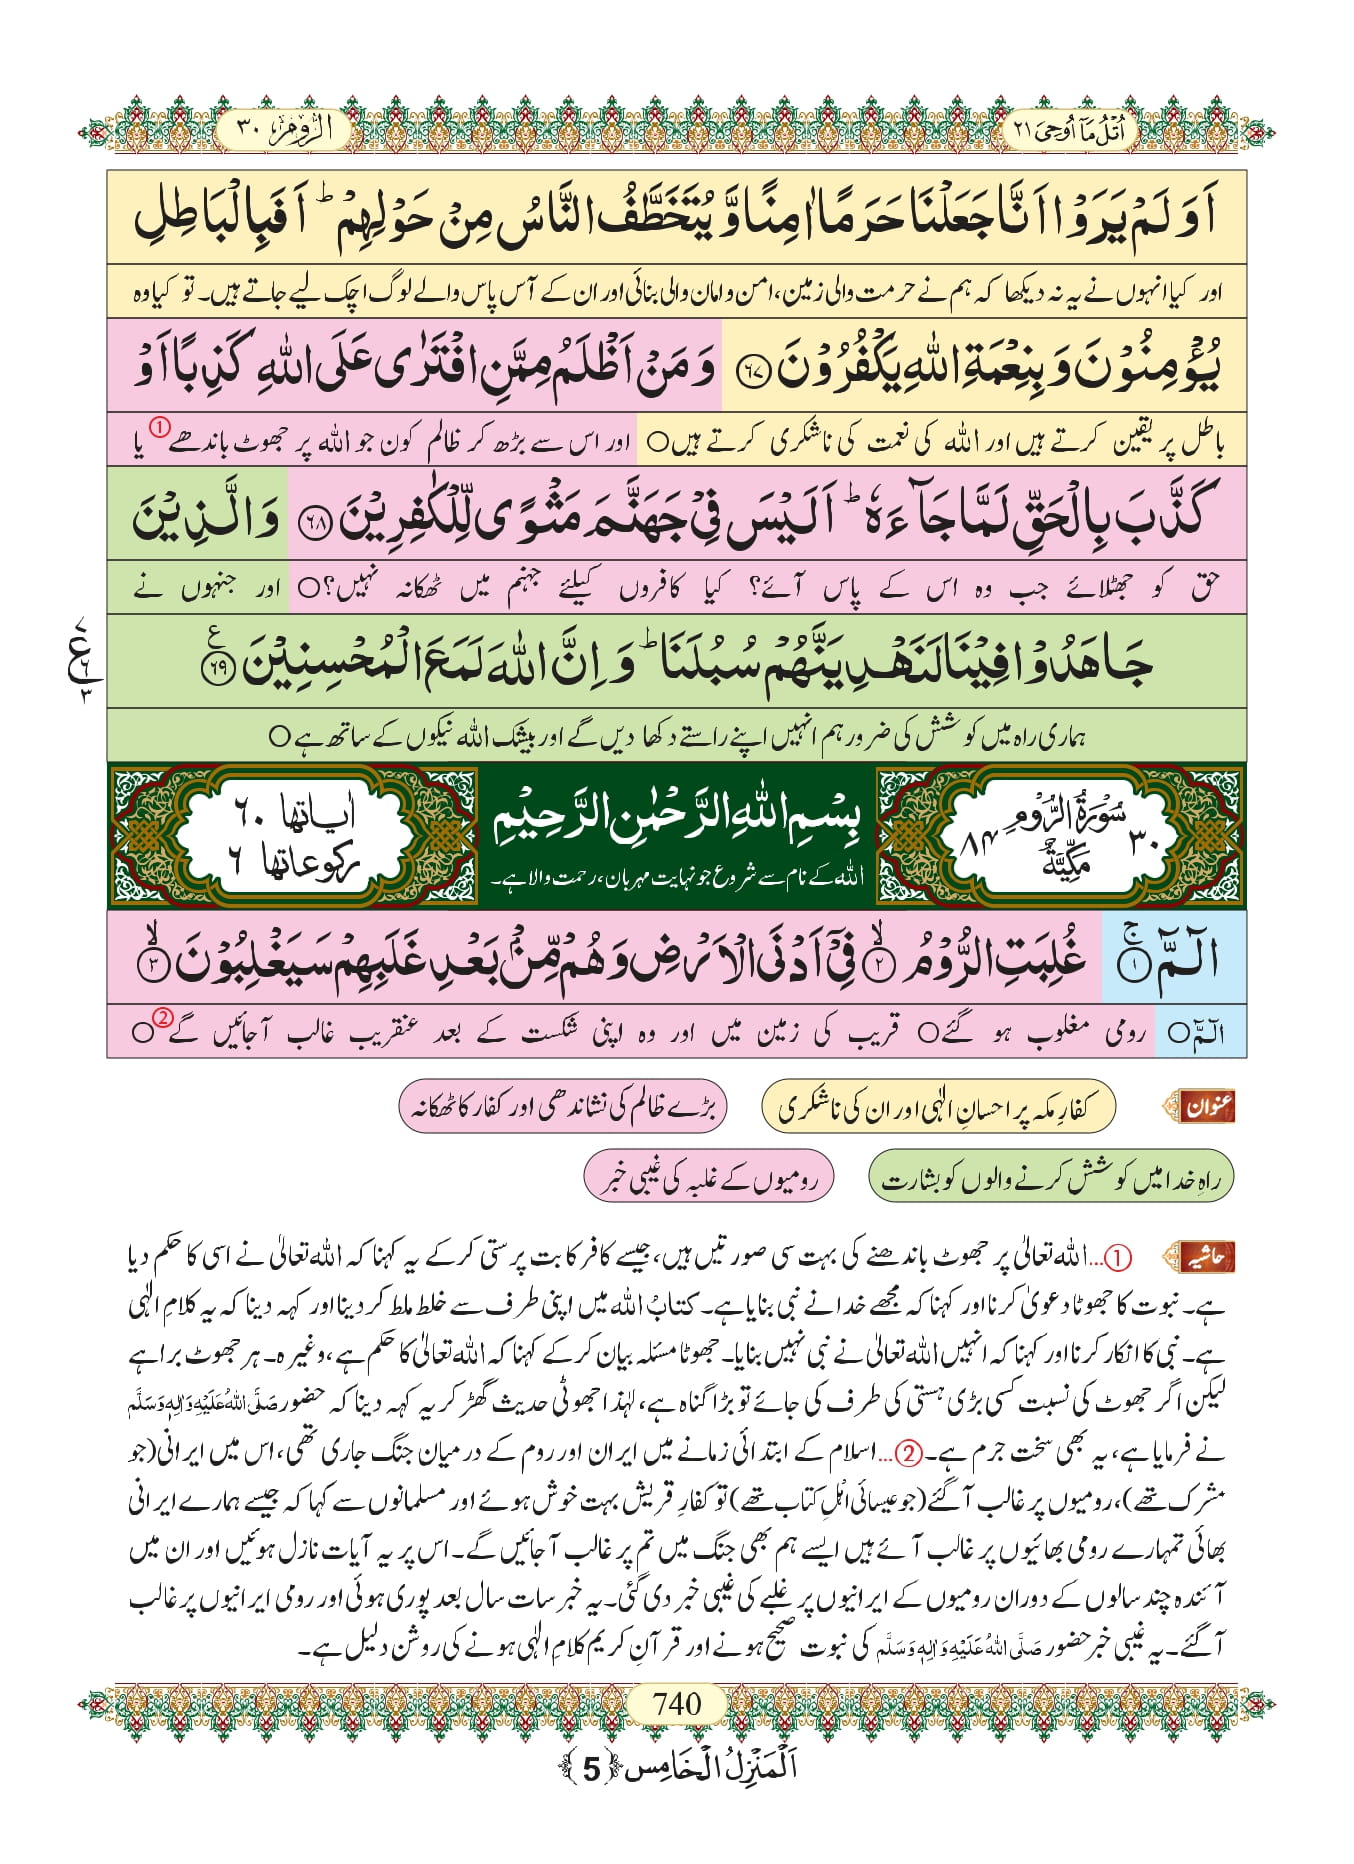 اُتْلُ مَاۤ اُوْحِیَ ۲۱
الرُّوْم ۳۰
اَوَ لَمْ یَرَوْا اَنَّا جَعَلْنَا حَرَمًا اٰمِنًا وَّ یُتَخَطَّفُ النَّاسُ مِنْ حَوْلِهِمْ ؕ اَفَبِالْبَاطِلِ
اور کیا انہوں نے یہ نہ دیکھا کہ ہم نے حرمت والی زمین، امن و امان والی بنائی اور ان کے آس پاس والے لوگ اچک لیے جاتے ہیں۔ تو کیا وہ
یُؤْمِنُوْنَ وَ بِنِعْمَةِ اللّٰهِ یَكْفُرُوْنَ ﴿۶۷﴾ وَ مَنْ اَظْلَمُ مِمَّنِ افْتَرٰى عَلَى اللّٰهِ كَذِبًا اَوْ
باطل پر یقین کرتے ہیں اور اللہ کی نعمت کی ناشکری کرتے ہیں○ اور اس سے بڑھ کر ظالم کون جو اللہ پر جھوٹ باندھے① یا
كَذَّبَ بِالْحَقِّ لَمَّا جَآءَهٗ ؕ اَلَیْسَ فِیْ جَهَنَّمَ مَثْوًى لِّلْكٰفِرِیْنَ ﴿۶۸﴾ وَ الَّذِیْنَ
حق کو جھٹلائے جب وہ اس کے پاس آئے؟ کیا کافروں کیلئے جہنم میں ٹھکانہ نہیں؟○ اور جنہوں نے
جَاهَدُوْا فِیْنَا لَنَهْدِیَنَّهُمْ سُبُلَنَا ؕ وَ اِنَّ اللّٰهَ لَمَعَ الْمُحْسِنِیْنَ ﴿۶۹﴾ ع
۷
ع
۶
۳
ہماری راہ میں کوشش کی ضرور ہم انہیں اپنے راستے دکھا دیں گے اور بیشک اللہ نیکوں کے ساتھ ہے○
۳۰ سُوْرَةُ الرُّوْمِ مَكِّیَّةٌ ۸۴
بِسْمِ اللّٰهِ الرَّحْمٰنِ الرَّحِیْمِ
اللہ کے نام سے شروع جو نہایت مہربان، رحمت والا ہے۔
اٰیاتها ۶۰
رکوعاتها ۶
الٓمّٓ ﴿۱﴾ ج غُلِبَتِ الرُّوْمُ ﴿۲﴾ لا فِیْۤ اَدْنَى الْاَرْضِ وَ هُمْ مِّنْۢ بَعْدِ غَلَبِهِمْ سَیَغْلِبُوْنَ ﴿۳﴾ لا
الٓمّٓ○ رومی مغلوب ہو گئے○ قریب کی زمین میں اور وہ اپنی شکست کے بعد عنقریب غالب آجائیں گے②○
عنوان
کفارِ مکہ پر احسانِ الٰہی اور ان کی ناشکری
بڑے ظالم کی نشاندھی اور کفار کا ٹھکانہ
راہِ خدا میں کوشش کرنے والوں کو بشارت
رومیوں کے غلبہ کی غیبی خبر
حاشیہ
①...اللہ تعالیٰ پر جھوٹ باندھنے کی بہت سی صورتیں ہیں، جیسے کافر کا بت پرستی کر کے یہ کہنا کہ اللہ تعالیٰ نے اسی کا حکم دیا
ہے۔ نبوت کا جھوٹا دعویٰ کرنا اور کہنا کہ مجھے خدا نے نبی بنایا ہے۔ کتابُ اللہ میں اپنی طرف سے خلط ملط کر دینا اور کہہ دینا کہ یہ کلامِ الٰہی
ہے۔ نبی کا انکار کرنا اور کہنا کہ انہیں اللہ تعالیٰ نے نبی نہیں بنایا۔ جھوٹا مسئلہ بیان کر کے کہنا کہ اللہ تعالیٰ کا حکم ہے، وغیرہ۔ ہر جھوٹ برا ہے
لیکن اگر جھوٹ کی نسبت کسی بڑی ہستی کی طرف کی جائے تو بڑا گناہ ہے، لہٰذا جھوٹی حدیث گھڑ کر یہ کہہ دینا کہ حضور صَلَّی اللہُ عَلَیْہِ وَاٰلِہٖ وَسَلَّم
نے فرمایا ہے، یہ بھی سخت جرم ہے۔ ②...اسلام کے ابتدائی زمانے میں ایران اور روم کے درمیان جنگ جاری تھی، اس میں ایرانی(جو
مشرک تھے)، رومیوں پر غالب آگئے(جو عیسائی اہلِ کتاب تھے) تو کفارِ قریش بہت خوش ہوئے اور مسلمانوں سے کہا کہ جیسے ہمارے ایرانی
بھائی تمہارے رومی بھائیوں پر غالب آئے ہیں ایسے ہم بھی جنگ میں تم پر غالب آجائیں گے۔ اس پر یہ آیات نازل ہوئیں اور ان میں
آئندہ چند سالوں کے دوران رومیوں کے ایرانیوں پر غلبے کی غیبی خبر دی گئی۔ یہ خبر سات سال بعد پوری ہوئی اور رومی ایرانیوں پر غالب
آگئے۔ یہ غیبی خبر حضور صَلَّی اللہُ عَلَیْہِ وَاٰلِہٖ وَسَلَّم کی نبوت صحیح ہونے اور قرآنِ کریم کلامِ الٰہی ہونے کی روشن دلیل ہے۔
740
اَلْمَنْزِلُ الْخَامِس ﴿5﴾